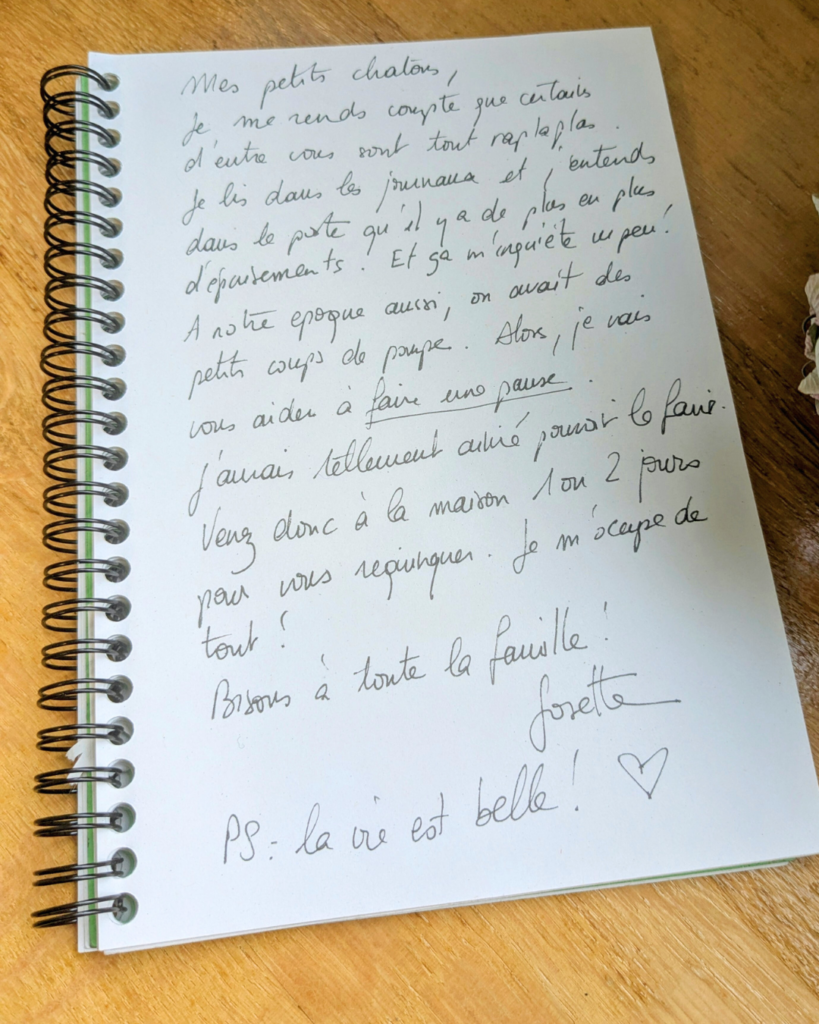 Mes petits chatons,
Je me rends compte que certains
d'entre vous sont tout raplaplas.
Je lis dans les journaux et j'entends
dans le poste qu'il y a de plus en plus
d'épuisements. Et ça m'inquiète un peu !
A notre epoque aussi, on avait des
petits coups de pompe. Alors, je vais
vous aider à faire une pause.
J'aurais tellement aimé pouvoir le faire.
Venez donc à la maison 1 ou 2 jours
pour vous requinquer. Je m'occupe de
tout !
Bisous à toute la famille !
Josette
PS : la vie est belle ! ♡